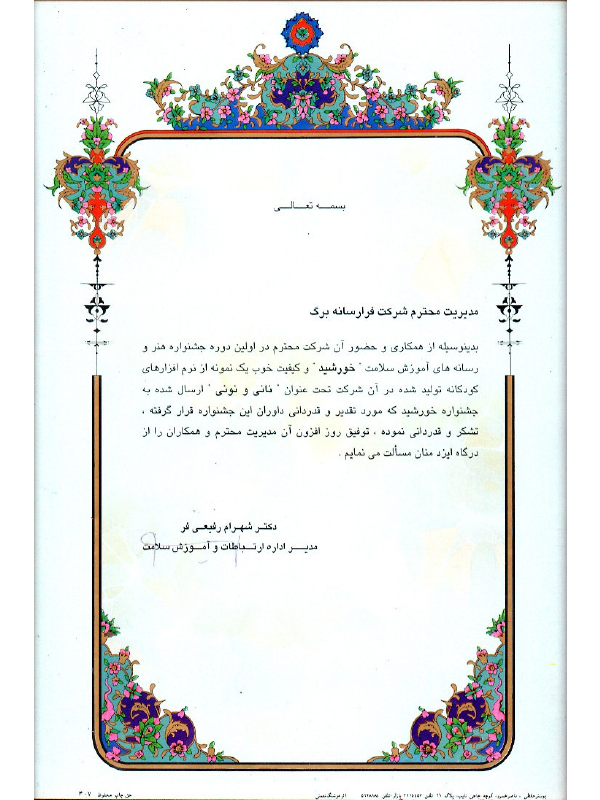 بسمه تعالی
مدیریت محترم شرکت فرارسانه برگ
بدینوسیله از همکاری و حضور آن شرکت محترم در اولین دوره جشنواره هنر و
رسانه های آموزش سلامت " خورشید " و کیفیت خوب یک نمونه از نرم افزارهای
کودکانه تولید شده در آن شرکت تحت عنوان " نانی و نونی " ارسال شده به
جشنواره خورشید که مورد تقدیر و قدردانی داوران این جشنواره قرار گرفته ،
تشکر و قدردانی نموده ، توفیق روز افزون آن مدیریت محترم و همکاران را از
درگاه ایزد منان مسألت می نمایم .
دکتر شهرام رفیعی فر
مدیر اداره ارتباطات و آموزش سلامت
حق چاپ محفوظ ۳۰۷